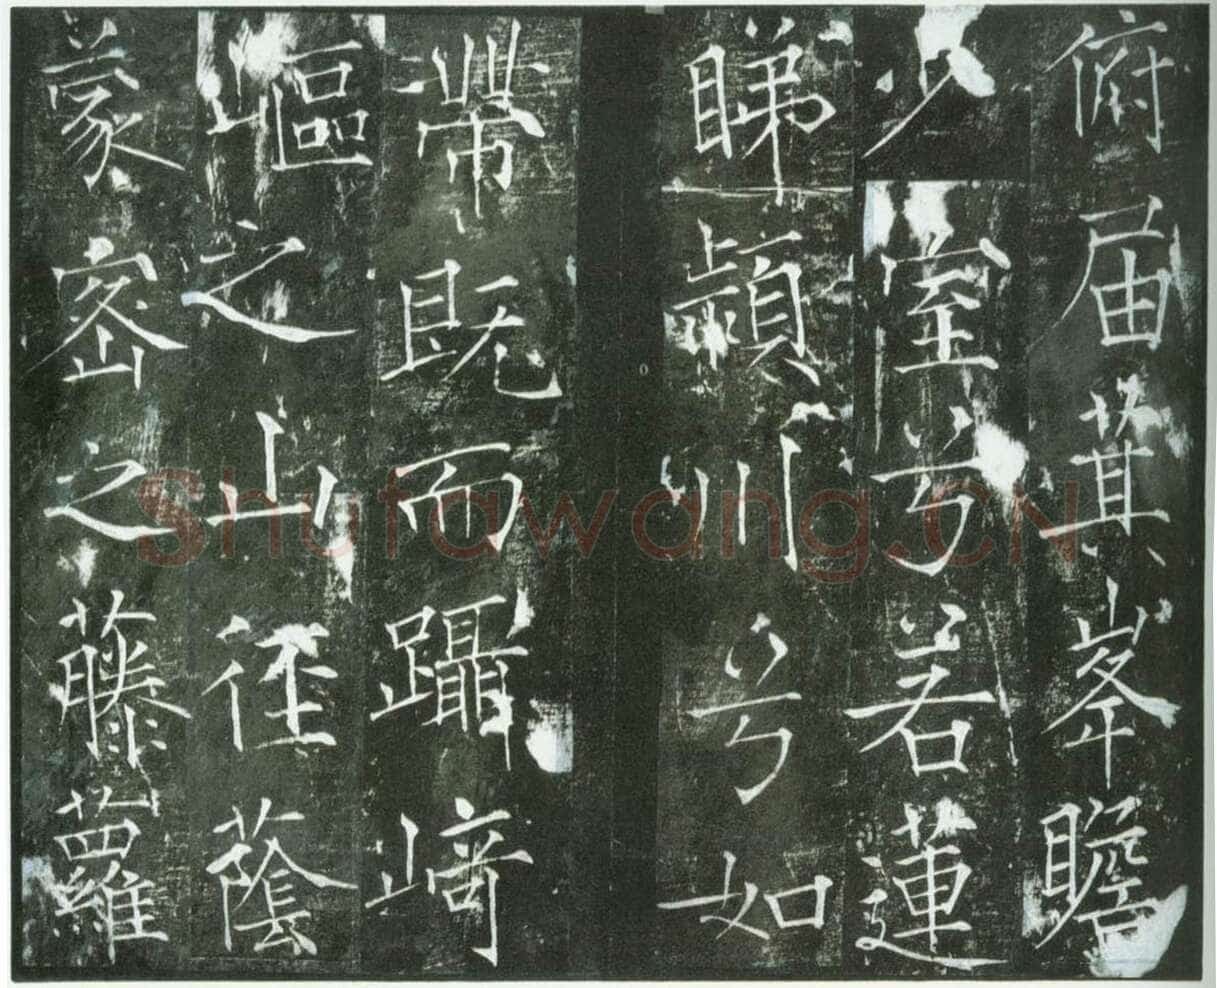 俯届萁峯瞻
少室兮若蓮
睇潁川兮如
帶既而躡崎
嶇之山徑蔭
蒙密之藤蘿
Shufawang.CN